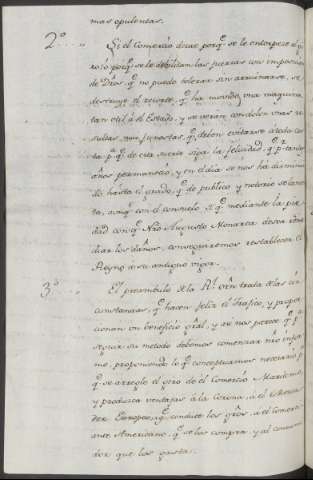 mas opulentas.
2º.... Si el Comercio decae porqe. se le entorpece el gi
ro, ó porqe. se le debilitan las fuerzas con imposicion
de Dros. qe. no puede tolerar sin arruinarse, se
destruye el resorte, qe. ha movido una maquina
tan util á el Estado, y se veran con dolor unas re
sultas, mui funestas, qe. deben evitarse á toda cos
ta pa. qe. de esta suerte siga la felicidad, qe. pr. tantos
años permaneció, y en el dia se nos ha disminui
do hasta el grado, qe. de publico, y notorio se
ta, aunqe. con el consuelo de qe. mediante la pie
dad con qe. Nro. Augusto Monarca desea reme
diar los daños, conseguiremos restablecer el
Reyno á su antiguo vigor.
3º... El preambulo de la Rl. orn. trata de las cir
cunstancias, qe. hacen feliz el trafico, y propor
cionan un beneficio gral., y se nos parece qe. pa.
seguir su metodo debemos comenzar nro. infor
me, proponiendo lo qe. conceptuamos necesario pa.
qe. se arregle el giro de el Comercio Maritimo,
y produzca ventajas á la Corona, á el Merca
der Europeo, qe. conduce los gros., á el Comerci
ante Americano, qe. se los compra, y al consumi
dor que los gasta.